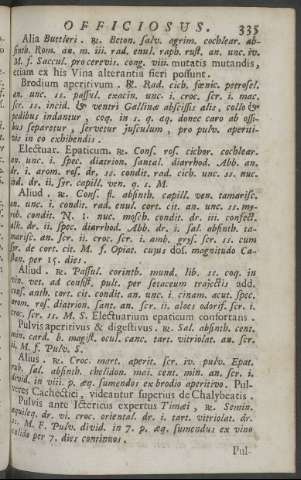 OFFICIOSUS. 335
Alia Buttleri. ℞. Beton. salv. agrim. cochlear. ab-
sinth. Rom. an. m. iii. rad. enul. raph. rust. an. unc. iv.
M. f. Saccul. pro cerevis. cong. viii. mutatis mutandis,
etiam ex his Vina alterantia fieri possunt.
Brodium aperitivum. ℞. Rad. cich. fœnic. petrosel.
an. unc. ss. passul. exacin. unc. i. croc. scr. i. mac.
scr. ss. incid. & ventri Gallinæ abscissis alis, collo &
pedibus indantur, coq. in s. q. aq. donec caro ab ossi-
bus separetur, servetur jusculum, pro pulv. aperiti-
vis in eo exhibendis.
Electuar. Epaticum. ℞. Cons. ros. cichor. cochlear.
an. unc. i. spec. diatrion. santal. diarrhod. Abb. an.
dr. i. arom. ros. dr. ss. condit. rad. cich. unc. ss. nuc.
ind. dr. ii. syr. capill. ven. q. s. M.
Aliud. ℞. Cons. fl. absinth. capill. ven. tamarisc.
an. unc. i. condit. rad. enul. cort. cit. an. unc. ss. my-
rob. condit. N. 1. nuc. mosch. condit. dr. iii. confect.
alk. dr. ii. spec. diarrhod. Abb. dr. i. sal. absinth. ta-
marisc. an. scr. ii. croc. scr. i. amb. grys. scr. ss. cum
syr. de cort. cit. M. f. Opiat. cujus dos. magnitudo Ca-
stan. per 15. dies.
Aliud. ℞. Passul. corinth. mund. lib. ss. coq. in
vin. vet. ad consist. pult. per setaceum trajectis add.
cons. anth. cort. cit. condit. an. unc. i. cinam. acut. spec.
arom. ros. diarion. sant. an. scr. ii. aloes odorif. scr. i.
croc. scr. ss. M. S. Electuarium epaticum confortans.
Pulvis aperitivus & digestivus. ℞. Sal. absinth. cent.
min. card. b. magist. ocul. canc. tart. vitriolat. au. scr.
ii. M. f. Pulv. S.
Alius. ℞. Croc. mart. aperit. scr. iv. pulv. Epat.
rub. sal. absinth. chelidon. mai. cent. min. an. scr. i.
divid. in viii. p. æq. sumendos ex brodio aperitivo. Pul-
veres Cachectici, videantur superius de Chalybeatis.
Pulvis ante Ictericus expertus Timæi, ℞. Semin.
aquileg. dr. vi. croc. oriental. dr. i. tart. vitriolat. dr.
ss. M. F. Pulv. divid. in 7. p. æq. sumendus ex vino
calido per 7. dies continuos.
Pul-